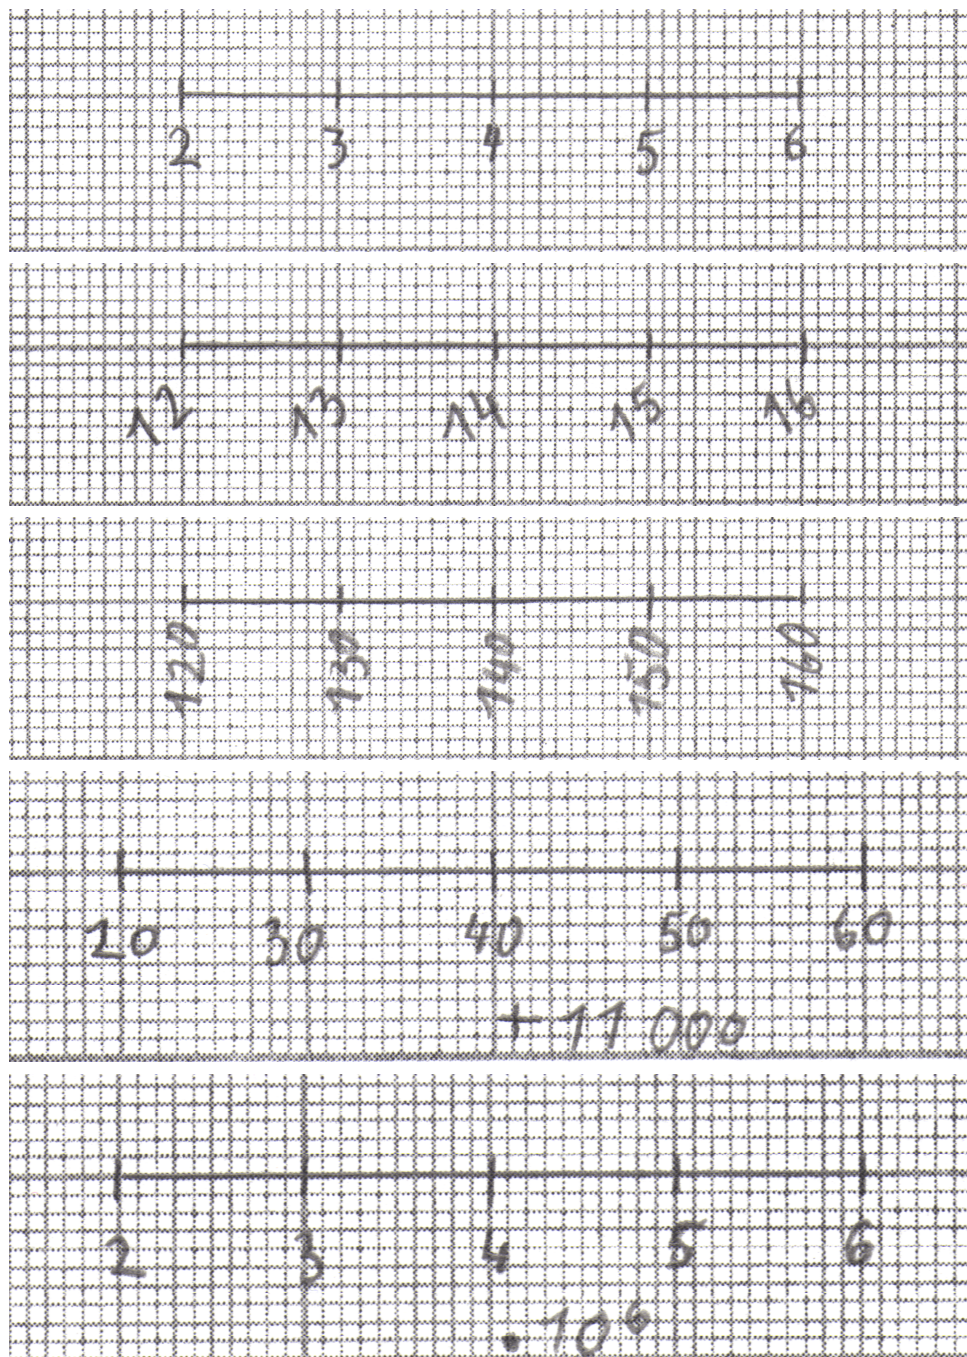 2 3 4 5 6
12 13 14 15 16
120 130 140 150 160
20 30 40 50 60
+ 11 000
2 3 4 5 6
· 10⁶